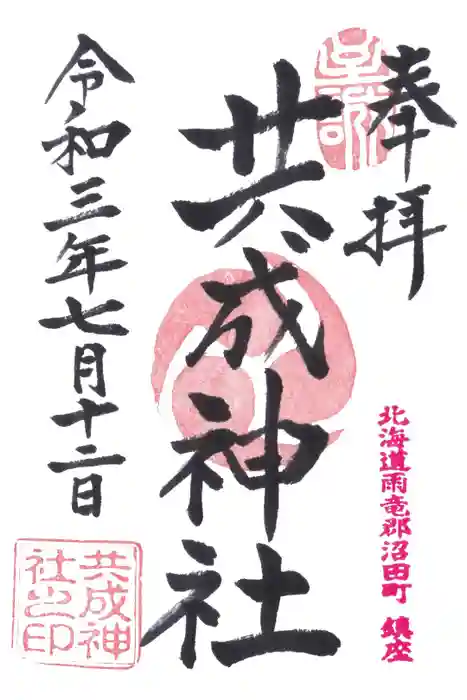 奉拝
共成神社
令和三年七月十二日
北海道雨竜郡沼田町 鎮座
共成神
社之印